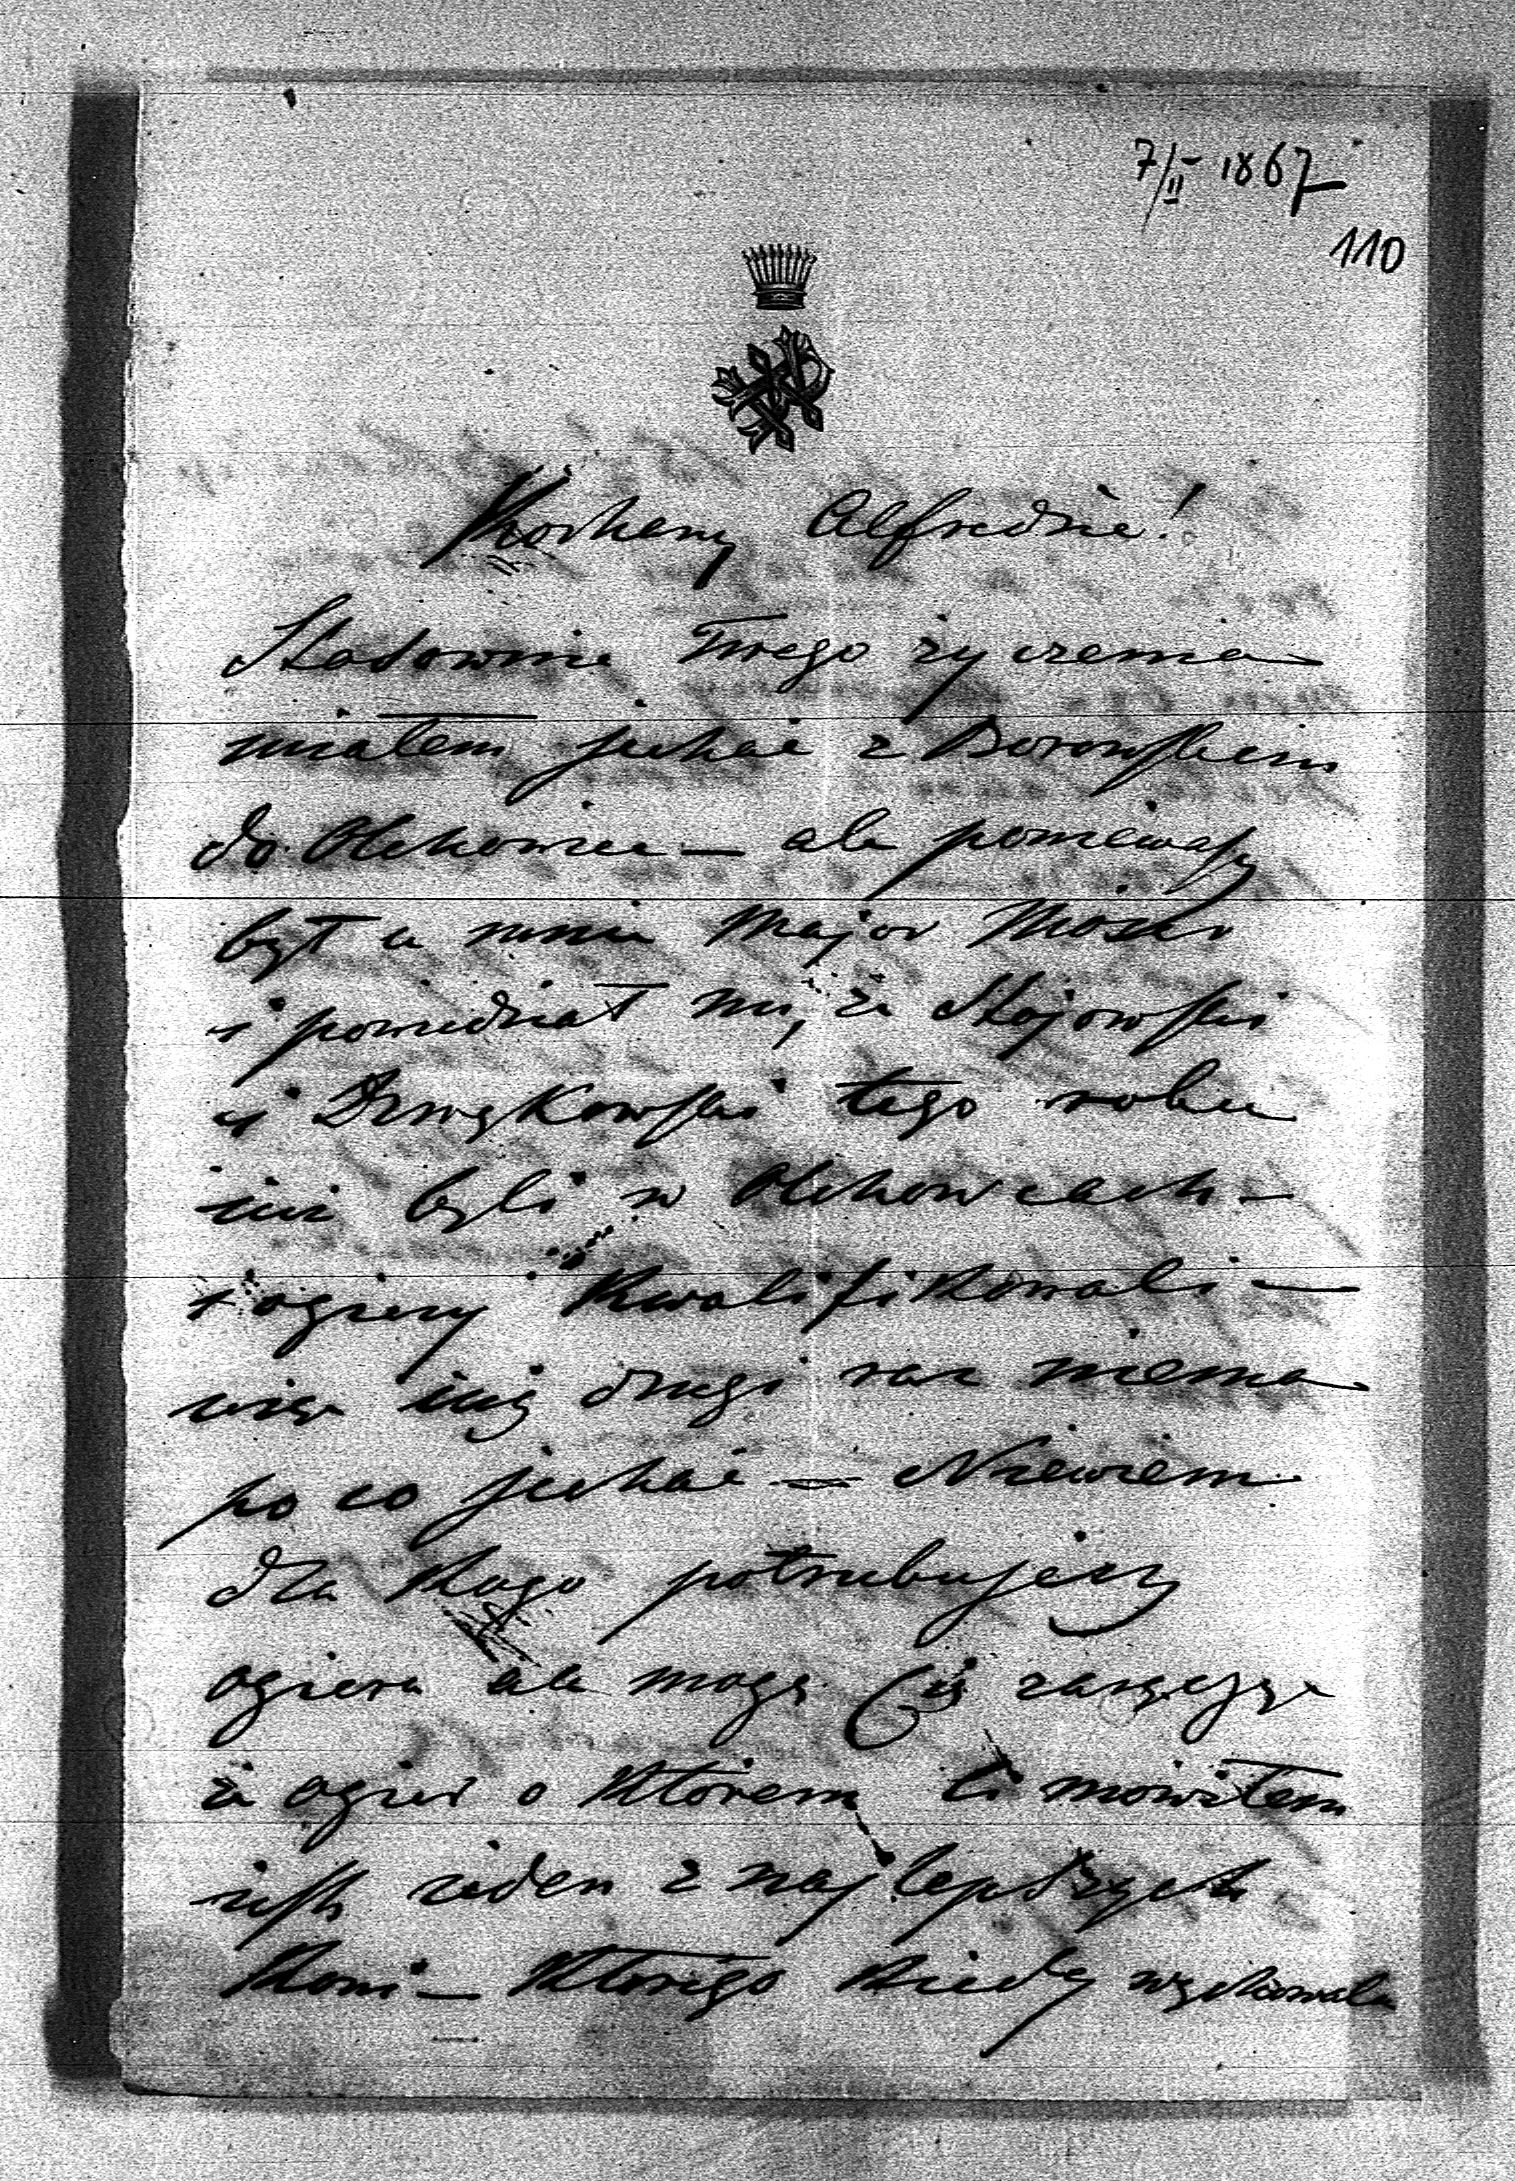 7/II 1867
110
Kochany Alfredzie!
Stosownie Twego życzenia
miałem jechać z Borowskiem
do Olchowiec — ale ponieważ
był u mnie Major
i powiedział mi, że Stojowski
i tego roku
już byli w Olchowcach —
i ogiery kwalifikowali —
więc już drugi raz niema
po co jechać — Niewiem
dla kogo potrzebujesz
ogiera ale mogę Cię zaręczyć
że ogier o którem ci mówiłem
jest jeden z najlepszych
koni — którego kiedy wychowała